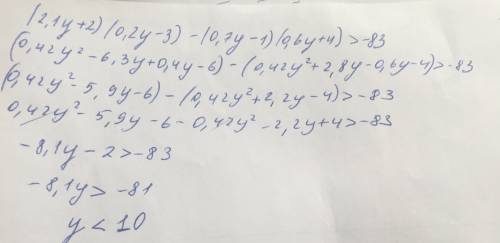 (2,1y+2)(0,2y-3)-(0,7y-1)(0,6y+4)>-83
(0,42y²-6,3y+0,4y-6)-(0,42y²+2,8y-0,6y-4)>-83
(0,42y²-5,9y-6)-(0,42y²+2,2y-4)>-83
0,42y²-5,9y-6-0,42y²-2,2y+4>-83
-8,1y-2>-83
-8,1y>-81
y<10